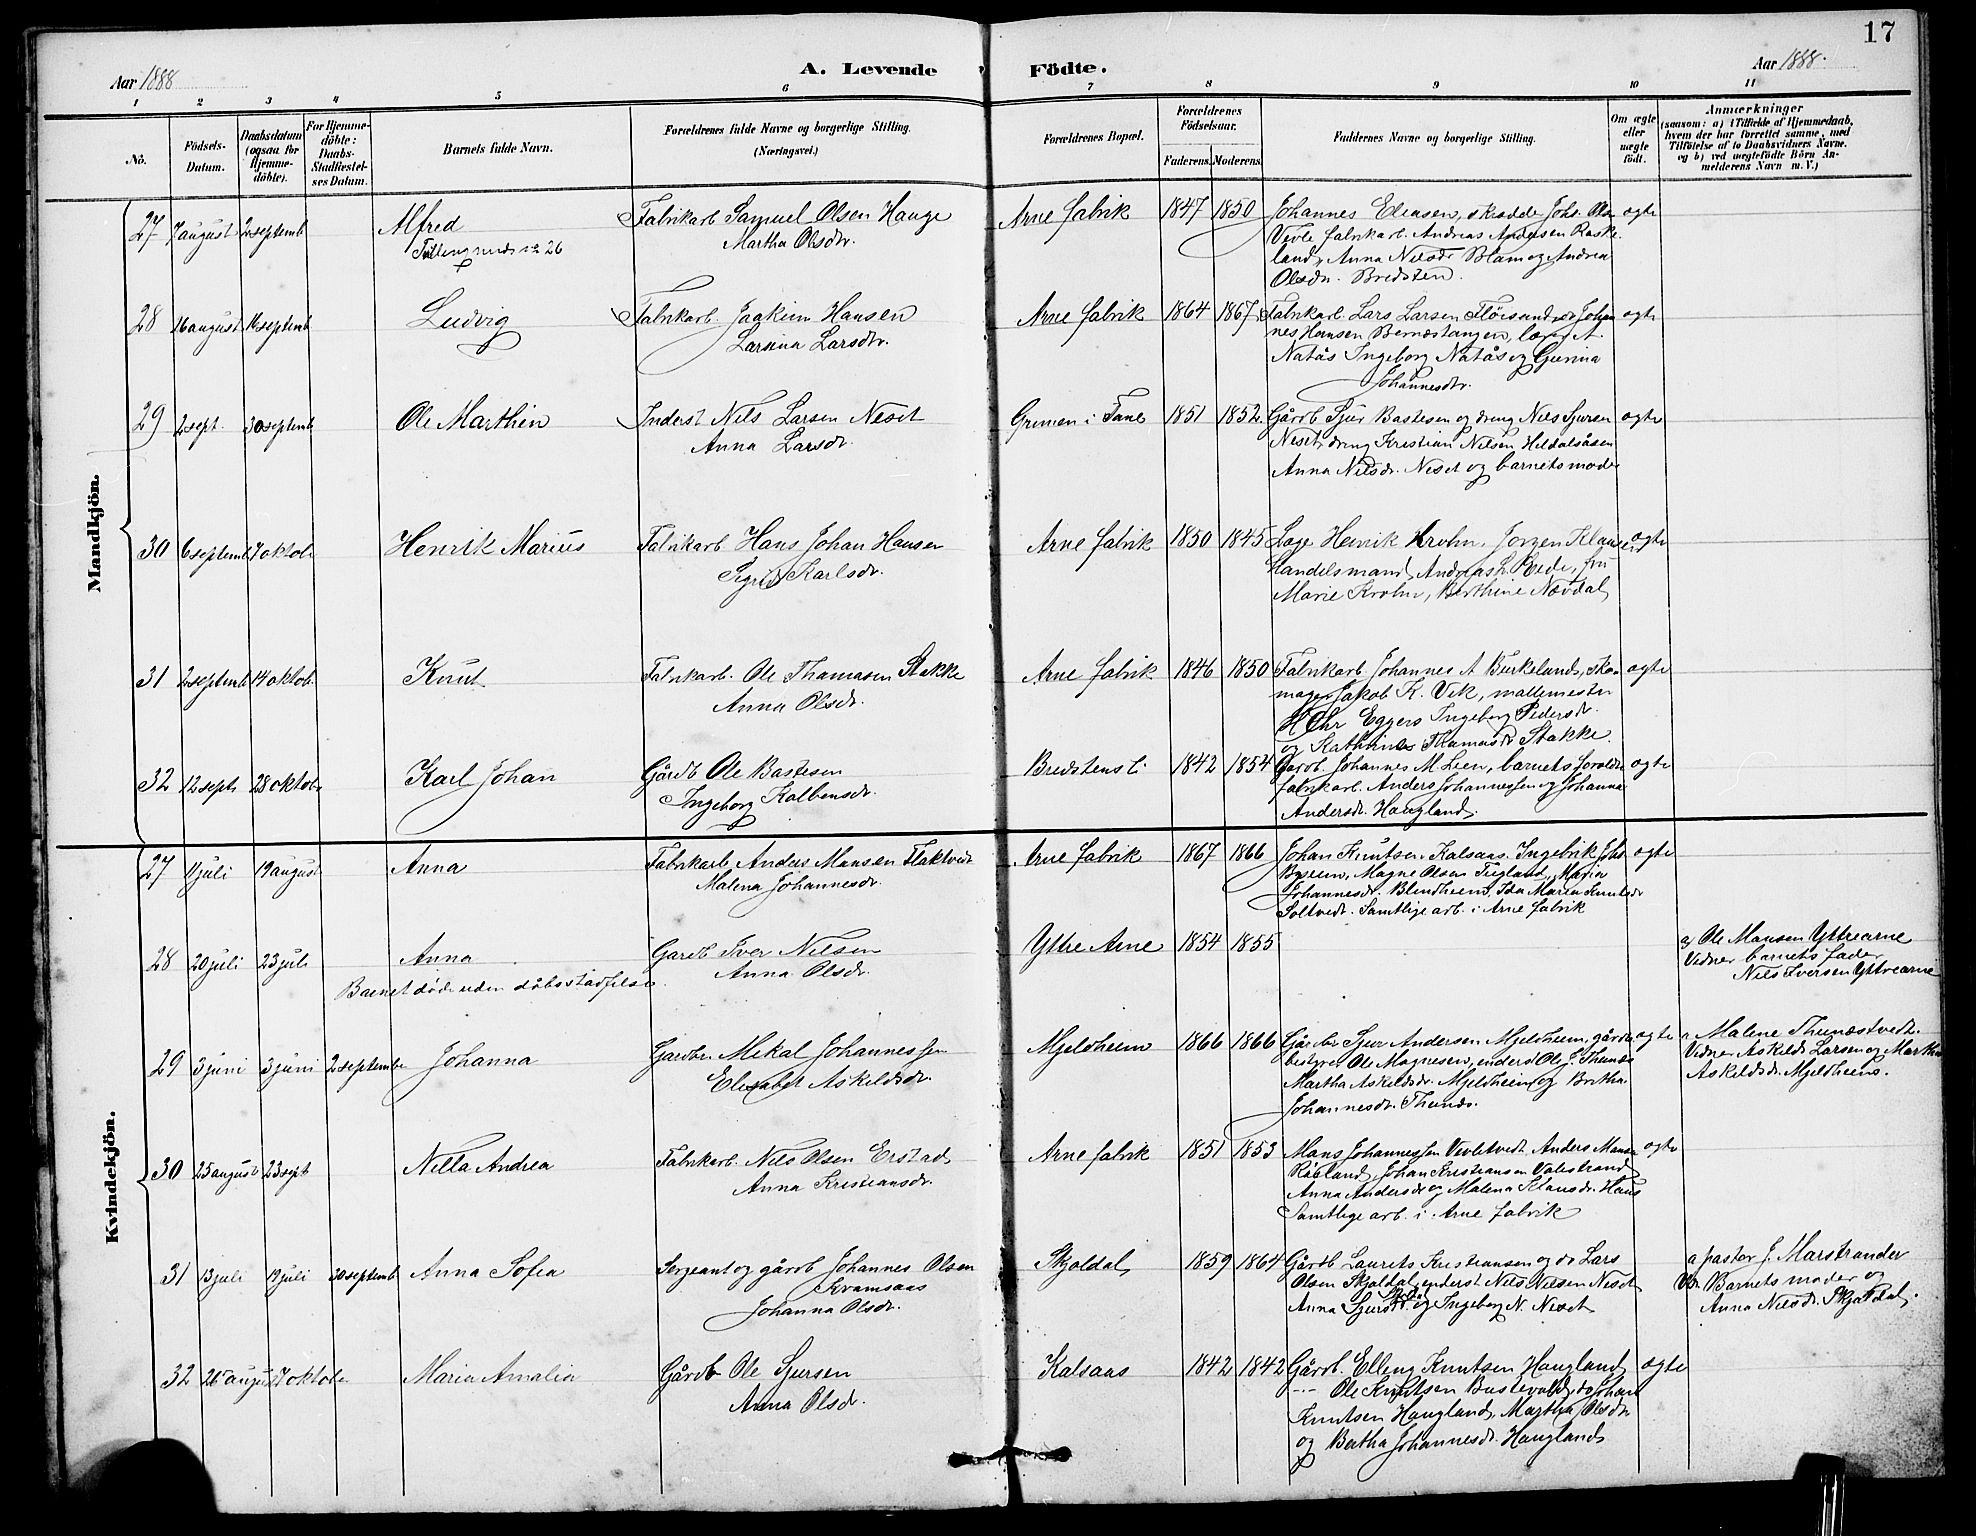 17
Aar 1888
A. Levende Födte.
Aar 1888.
1 2 3 4 5 6 7 8 9 10 11
No.
Födsels-Datum.
Daabsdatum (ogsaa for Hjemme-döbte).
For Hjemme-döbte: Daabs-Stadfæstel-ses Datum.
Barnets fulde Navn.
Forældrenes fulde Navne og borgerlige Stilling.
(Næringsvei.)
Forældrenes Bopæl.
Forældrenes Födselsaar.
Faderens. Moderens.
Faddernes Navne og borgerlige Stilling.
Om ægte eller uægte födt.
Anmærkninger
(saasom: a) i Tilfælde af Hjemmedaab,
hvem der har forrettet samme, med
Tilföielse af to Daabsvidners Navne.
og b) ved uægtefödte Börn An-
melderens Navn m. V.)
Mandkjön.
27 7 august 2 septemb Alfred Fabrikarb Samuel Olsen Hauge Arne fabrik 1847 1850 Johannes Eleasen, Johs. Ols ægte
Martha Olsdr. fabrikarb. Andreas Andersen Raske
26 land, Anna Nilsdr og Andrea
Olsdr. Bredsten.
28 16 august 16 septemb Ludvig Fabrikarb. Joakim Hansen Arne fabrik 1864 1867 Fabrikarb Lars Larsen Johan ægte
Larsina Larsdr. nes Hansen Bernestangen, lærer A.
Natås Ingeborg Natås og Gurina
Johannesdr.
29 2 sept. 30 septemb Ole Marthin Inderst Nils Larsen Neset Grimen i Fane 1851 1852 Gårdb Sjur Bastesen og dreng Nils Sjursen ægte
Anna Larsdr. Neset, dreng Kristian Nilsen Heldalsåsen
Anna Nilsdr. Neset og barnets moder
30 6 septemb 7 oktob Henrik Marius Fabrikarb Hans Johan Hansen Arne fabrik 1850 1845 Læge Henrik Krohn, Jørgen Klausen ægte
Sigrid Karlsdr. Handelsmand, Andreas L. Rede, fru
Marie Krohn, Berthine Nævdal
31 2 septemb 14 oktob. Knut Fabrikarb. Ole Thomasen Stakke Arne fabrik 1846 1850 Fabrikarb Johannes A Birkeland, sko- ægte
Anna Olsdr. mager Jakob K. Vik, mallemester
H Chr Eggers Ingeborg Pedersdr.
og Kathrine Thomasdr Stakke.
32 12 sept 28 oktob Karl Johan Gårdb Ole Bastesen Bredstensli 1842 1854 Gårdb. Johannes M Lien, barnets foreldre ægte
Ingeborg Kolbensdr. fabrikarb. Anders Johannessen og Johanna
Andersdr. Haugland.
Kvindekjön.
27 11 juli 19 august Anna Fabrikarb Anders Mansen Flaktvedt Arne fabrik 1867 1866 Johan Knutsen Kalsaas. Ingebrik Johs. ægte
Malena Johannesdr. Magne Olsen Tugland, Maria
Johannesdr. Blindheim, Ida Maria Knutsdr
Soltvedt. Samtlige arb. i Arne fabrik
28 20 juli 23 juli Anna Gardb Iver Nilsen Yttre Arne 1854 1855 a Ole Mansen Yttrearne
Anna Olsdr. Vidner barnets fader
Barnet døde uden dåbsstadfelse. Nils Iversen Yttrearne
29 3 juni 3 juni 2 septembe Johanna Gardbr. Mikal Johannessen Mjeldheim 1866 1866 Gårdbr Sjur Andersen Mjeldheim, gårds ægte a Malene Thunæstvedt.
Elisabet Askildsdr. bestyrer Ole Magnesen, enderst Ole J. Thunæs Vidner Askild Larsen og Martha
Martha Askildsdr. Mjeldheim og Britha Askildsdr. Mjeldheim.
Johannesdr. Thunæs.
30 25 august 23 sept Nilla Andrea Fabrikarb. Nils Olsen Erstad Arne fabrik 1851 1853 Mans Johannessen Vevletvedt Anders Mans ægte
Anna Kristiansdr. Johan Kristiansen Valestrand
Anna Andersdr og Malena Klausdr. Haus
Samtlige arb. i Arne fabrik
31 13 juli 19 juli 30 septemb Anna Sofia Sergeant og gårdb Johannes Olsen Skjoldal 1859 1864 Gårdb Laurits Kristiansen og do Lars a pastor J. Marstrander
Kvamsaas Olsen Skjoldal, enderst Nils Nilsen Neset Vdn. Barnets moder og
Johanna Olsdr. Anna Sjursdr. og Ingeborg N. Neset Anna Nilsdr. Skjoldal.
32 26 august 7 oktobe Maria Amalia Gårdb Ole Sjursen Kalsaas 1842 1842 Gårdb. Elling Knutsen Haugland ægte
Anna Olsdr. -"- Ole Knutsen do Johan
Knutsen Haugland, Martha Olsdr
og Bertha Johannesdr. Haugland